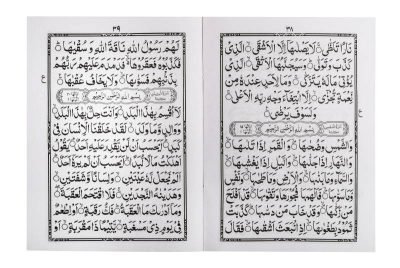 ٣٨
نَارًا تَلَظّٰى ۝ لَا يَصْلٰىهَآ اِلَّا الْاَشْقَى ۝ الَّذِىْ
كَذَّبَ وَتَوَلّٰى ۝ وَسَيُجَنَّبُهَا الْاَتْقَى ۝ الَّذِىْ
يُؤْتِىْ مَالَهٗ يَتَزَكّٰى ۝ وَمَا لِاَحَدٍ عِنْدَهٗ مِنْ
نِّعْمَةٍ تُجْزٰٓى ۝ اِلَّا ابْتِغَآءَ وَجْهِ رَبِّهِ الْاَعْلٰى ۝
وَلَسَوْفَ يَرْضٰى ۝
ع
بِسْمِ اللهِ الرَّحْمٰنِ الرَّحِيْمِ
وَالشَّمْسِ وَضُحٰىهَا ۝ وَالْقَمَرِ اِذَا تَلٰىهَا ۝
وَالنَّهَارِ اِذَا جَلّٰىهَا ۝ وَالَّيْلِ اِذَا يَغْشٰىهَا ۝
وَالسَّمَآءِ وَمَا بَنٰىهَا ۝ وَالْاَرْضِ وَمَا طَحٰىهَا ۝ وَنَفْسٍ
وَّمَا سَوّٰىهَا ۝ فَاَلْهَمَهَا فُجُوْرَهَا وَتَقْوٰىهَا ۝ قَدْ اَفْلَحَ
مَنْ زَكّٰىهَا ۝ وَقَدْ خَابَ مَنْ دَسّٰىهَا ۝ كَذَّبَتْ
ثَمُوْدُ بِطَغْوٰىهَآ ۝ اِذِ انْۢبَعَثَ اَشْقٰىهَا ۝ فَقَالَ
٣٩
لَهُمْ رَسُوْلُ اللهِ نَاقَةَ اللهِ وَسُقْيٰهَا ۝
فَكَذَّبُوْهُ فَعَقَرُوْهَا ۝ فَدَمْدَمَ عَلَيْهِمْ رَبُّهُمْ
بِذَنْۢبِهِمْ فَسَوّٰىهَا ۝ وَلَا يَخَافُ عُقْبٰهَا ۝
ع
بِسْمِ اللهِ الرَّحْمٰنِ الرَّحِيْمِ
لَآ اُقْسِمُ بِهٰذَا الْبَلَدِ ۝ وَاَنْتَ حِلٌّۢ بِهٰذَا الْبَلَدِ ۝
وَوَالِدٍ وَّمَا وَلَدَ ۝ لَقَدْ خَلَقْنَا الْاِنْسَانَ فِىْ
كَبَدٍ ۝ اَيَحْسَبُ اَنْ لَّنْ يَّقْدِرَ عَلَيْهِ اَحَدٌ ۝ يَقُوْلُ
اَهْلَكْتُ مَالًا لُّبَدًا ۝ اَيَحْسَبُ اَنْ لَّمْ يَرَهٗٓ اَحَدٌ ۝
اَلَمْ نَجْعَلْ لَّهٗ عَيْنَيْنِ ۝ وَلِسَانًا وَّشَفَتَيْنِ ۝
وَهَدَيْنٰهُ النَّجْدَيْنِ ۝ فَلَا اقْتَحَمَ الْعَقَبَةَ ۝
وَمَآ اَدْرٰىكَ مَا الْعَقَبَةُ ۝ فَكُّ رَقَبَةٍ ۝ اَوْ اِطْعٰمٌ
فِىْ يَوْمٍ ذِىْ مَسْغَبَةٍ ۝ يَّتِيْمًا ذَا مَقْرَبَةٍ ۝ اَوْ